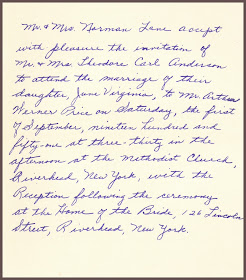 Mr. & Mrs. Norman Lane accept
with pleasure the invitation of
Mr. & Mrs. Theodore Carl Anderson
to attend the marriage of their
daughter, June Virginia, to Mr. Arthur
Werner Price on Saturday, the first
of September, nineteen hundred and
fifty-one at three-thirty in the
afternoon at the Methodist Church,
Riverhead, New York, with the
Reception following the ceremony
at the Home of the Bride, 126 Lincoln
Street, Riverhead, New York.